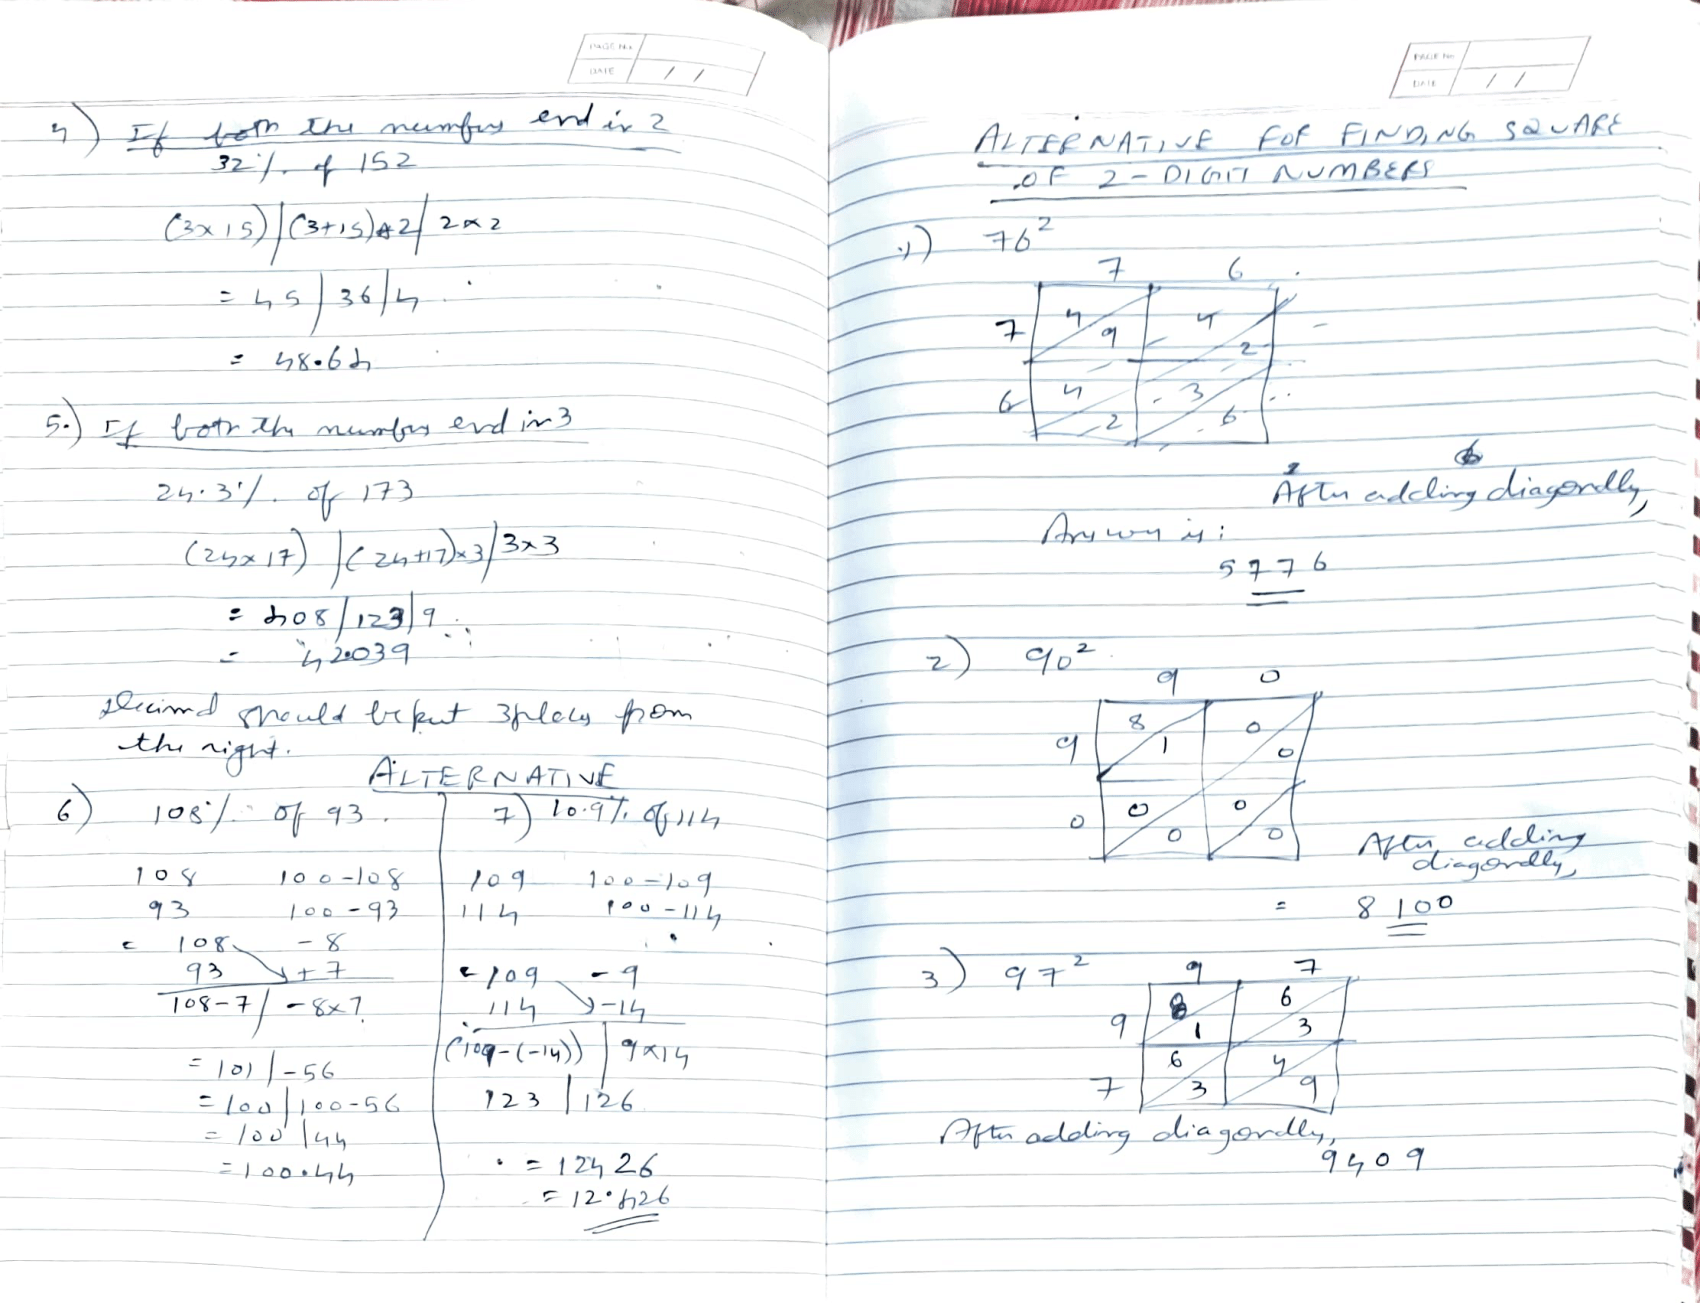 PAGE No.
DATE / /
4) If both the numbers end in 2
32% of 152
(3x15) | (3+15)x2 | 2x2
= 45 | 36 | 4
= 48.64
5.) If both the numbers end in 3
24.3% of 173
(24x17) | (24+17)x3 | 3x3
= 408 | 123 | 9
= 42039
Decimal should be put 3places from
the right.
ALTERNATIVE
6) 108% of 93.
108 100-108
93 100-93
= 108 -8
93 +7
108-7 | -8x7
= 101 | -56
= 100 | 100-56
= 100 | 44
= 100.44
7) 10.9% of 114
109 100-109
114 100-114
= 109 -9
114 -14
(109-(-14)) | 9x14
123 | 126
= 12426
= 12.426
PAGE No.
DATE / /
ALTERNATIVE FOR FINDING SQUARE
OF 2-DIGIT NUMBERS
1) 76²
7 6
7 4 9 4 2
6 4 2 3 6
After adding diagonally,
Answer is:
5776
2) 90²
9 0
9 8 1 0 0
0 0 0 0 0
After adding
diagonally,
= 8100
3) 97²
9 7
9 8 1 6 3
7 6 3 4 9
After adding diagonally,
9409